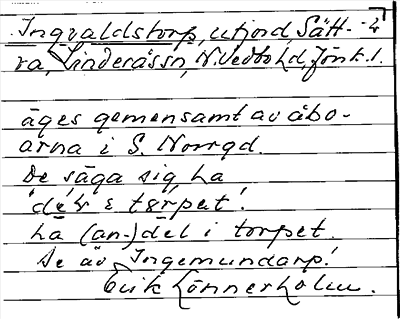 Ingvaldstorp, utjord, Sätt-
ra, Linderåssn, N. Vedbo hd, Jönk. l.
äges gemensamt av åbo-
arna i S. Norrgd.
De säga sig ha
i torpet.
ha (an-)del i torpet.
Se äv. Ingemundarp!
Erik Lönnerholm.